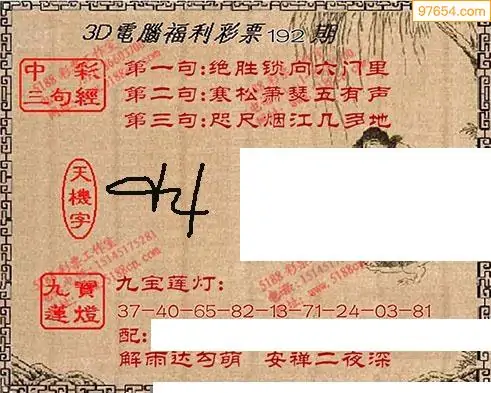 97654.com
3D電腦福利彩票192期
中彩三句經
第一句:绝胜锁向六门里
第二句:寒松萧瑟五有声
第三句:咫尺烟江几多地
天機字
5188 彩票工作室
15145175281
九寶蓮燈
九宝莲灯:
37-40-65-82-13-71-24-03-81
配:
解雨达勾萌 安禅二夜深